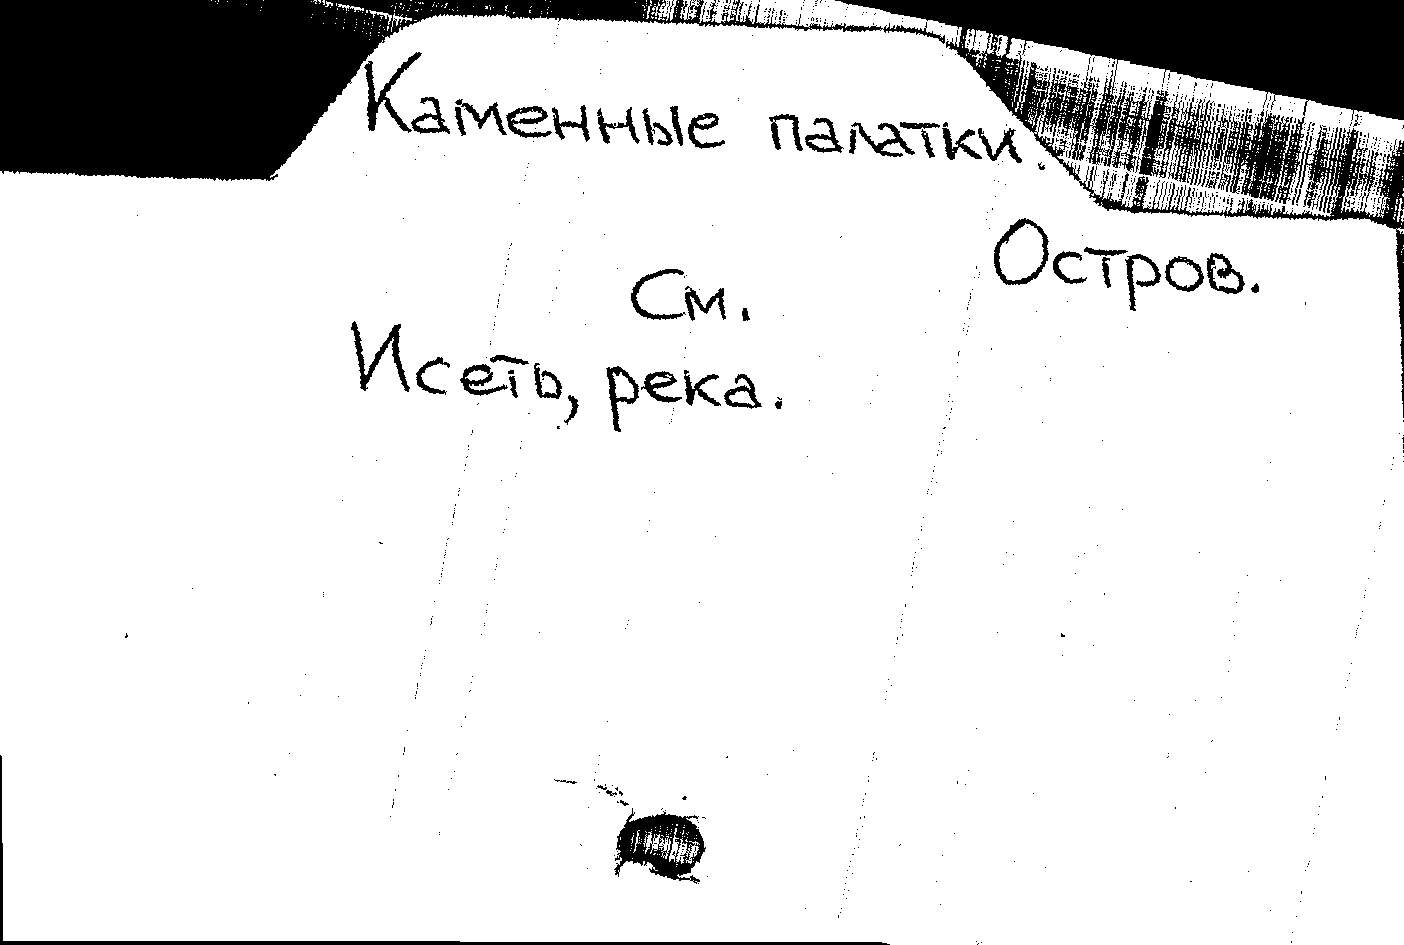 Каменные палатки.
Остров.
См.
Исеть, река.